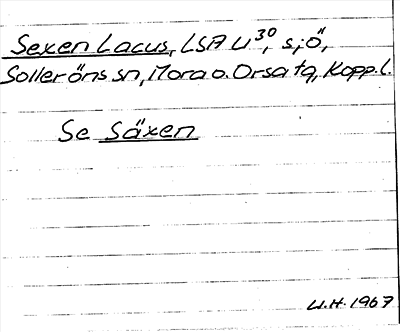 Sexen Lacus, LSA U³⁰, sjö,
Solleröns sn, Mora o. Orsa tg, Kopp.l.
Se Säxen
U.H. 1967